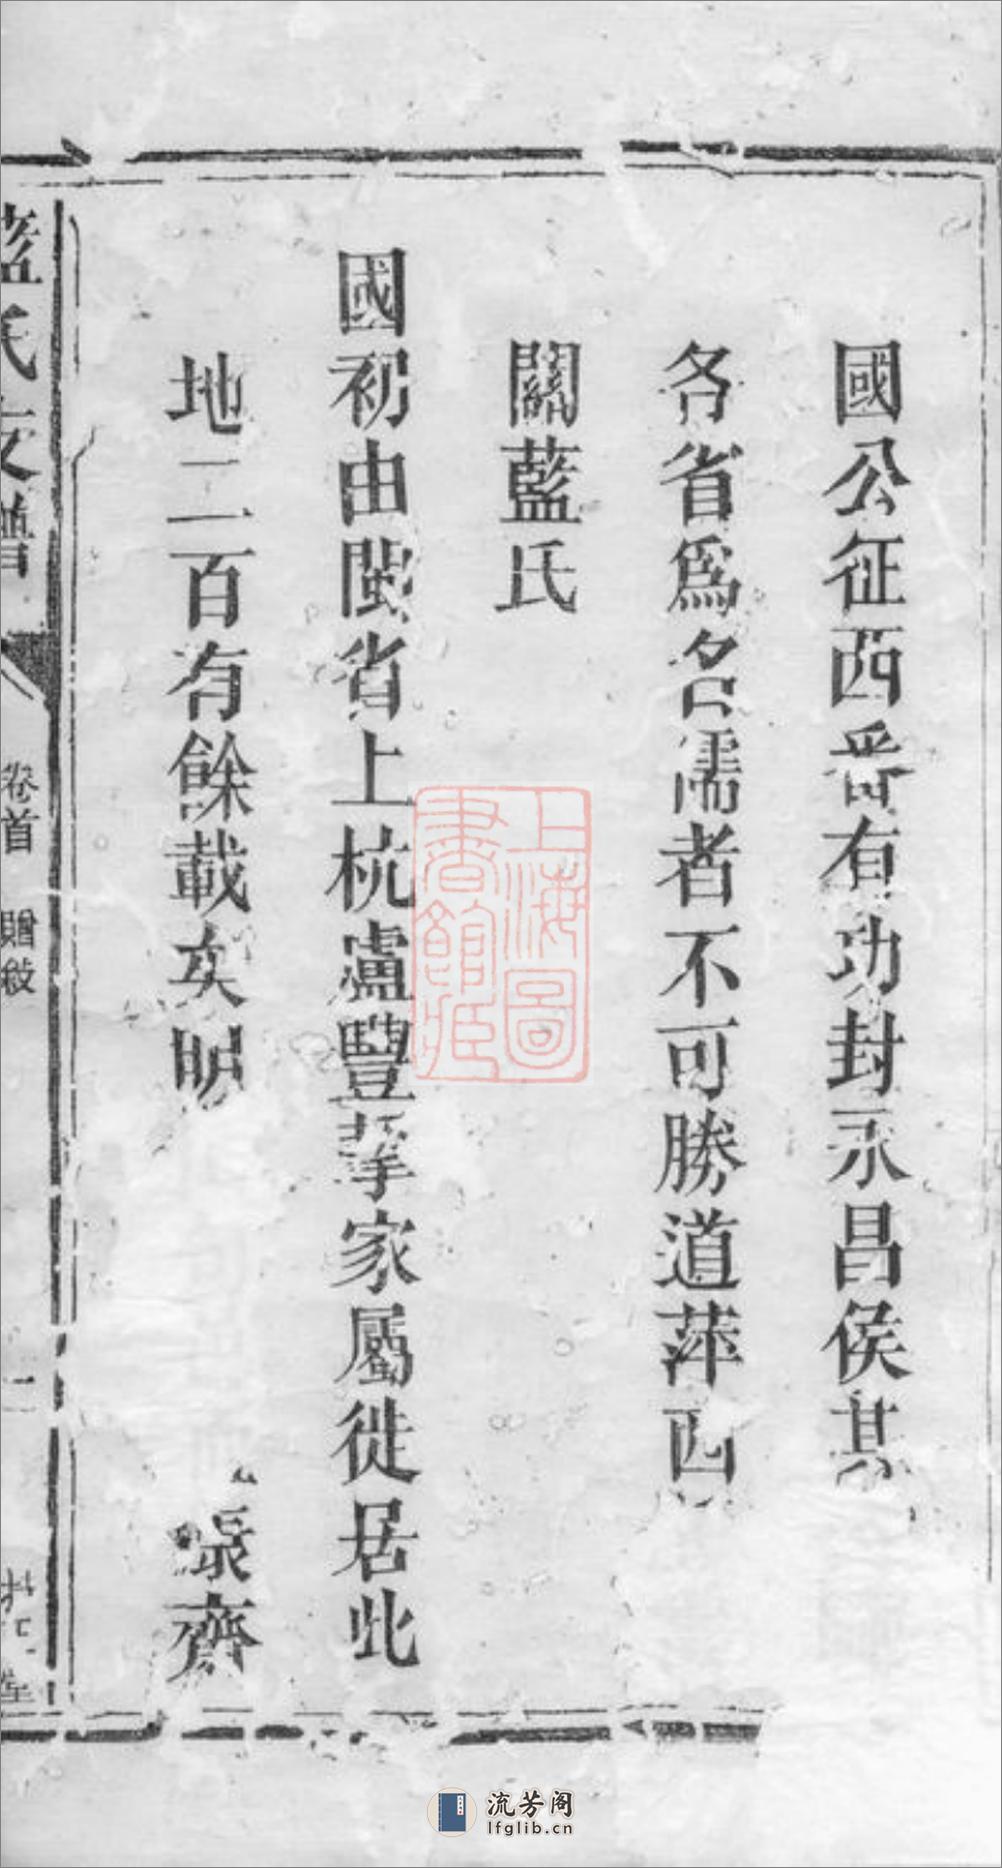 國公征西番有功封永昌侯其
各省為名儒者不可勝道萍西
關藍氏
國初由閩省上杭盧豐挈家屬徙居此
地二百有餘載矣明
張齊
藍氏支譜
卷首 贈敘
二
堂
上海圖書館藏
流芳阁
lfglib.cn